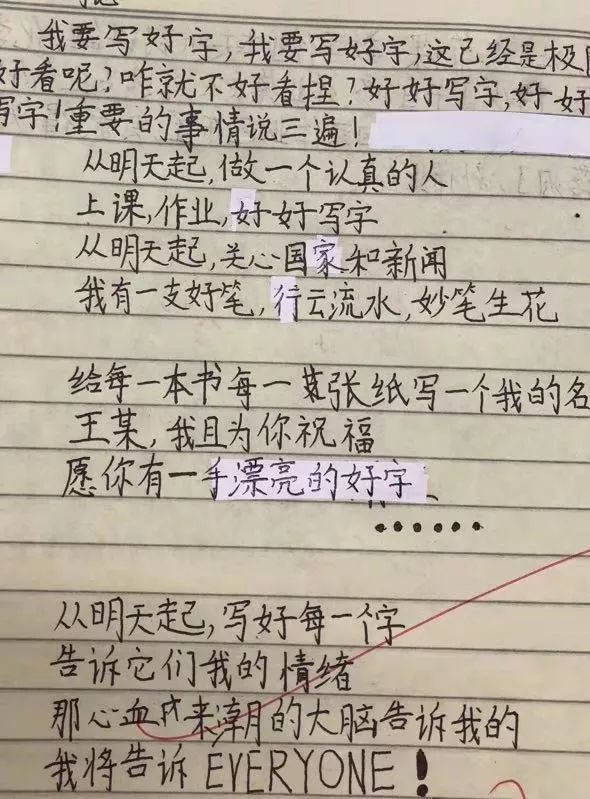 我要写好字,我要写好字,这已经是极
好看呢?咋就不好看捏?好好写字,好好
写字!重要的事情说三遍!
从明天起,做一个认真的人
上课,作业,好好写字
从明天起,关心国家和新闻
我有一支好笔,行云流水,妙笔生花
给每一本书每一张纸写一个我的名
王某,我且为你祝福
愿你有一手漂亮的好字
......
从明天起,写好每一个字
告诉它们我的情绪
那心血来潮的大脑告诉我的
我将告诉 EVERYONE!